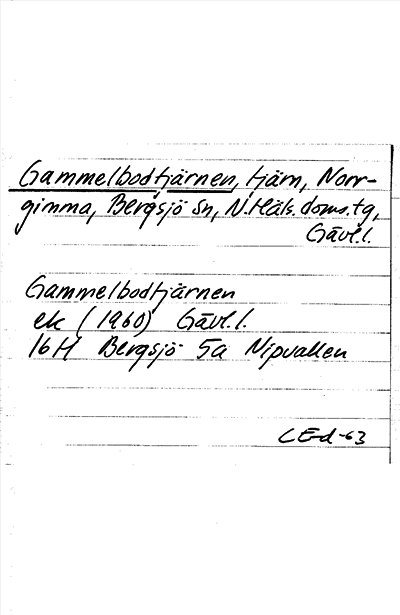 Gammelbodtjärnen, tjärn, Norr-
gimma, Bergsjö sn, N.Häls. doms.tg,
Gävl.l.
Gammelbodtjärnen
ek (1960) Gävl.l.
16H Bergsjö 5a Nipvallen
CEd-63